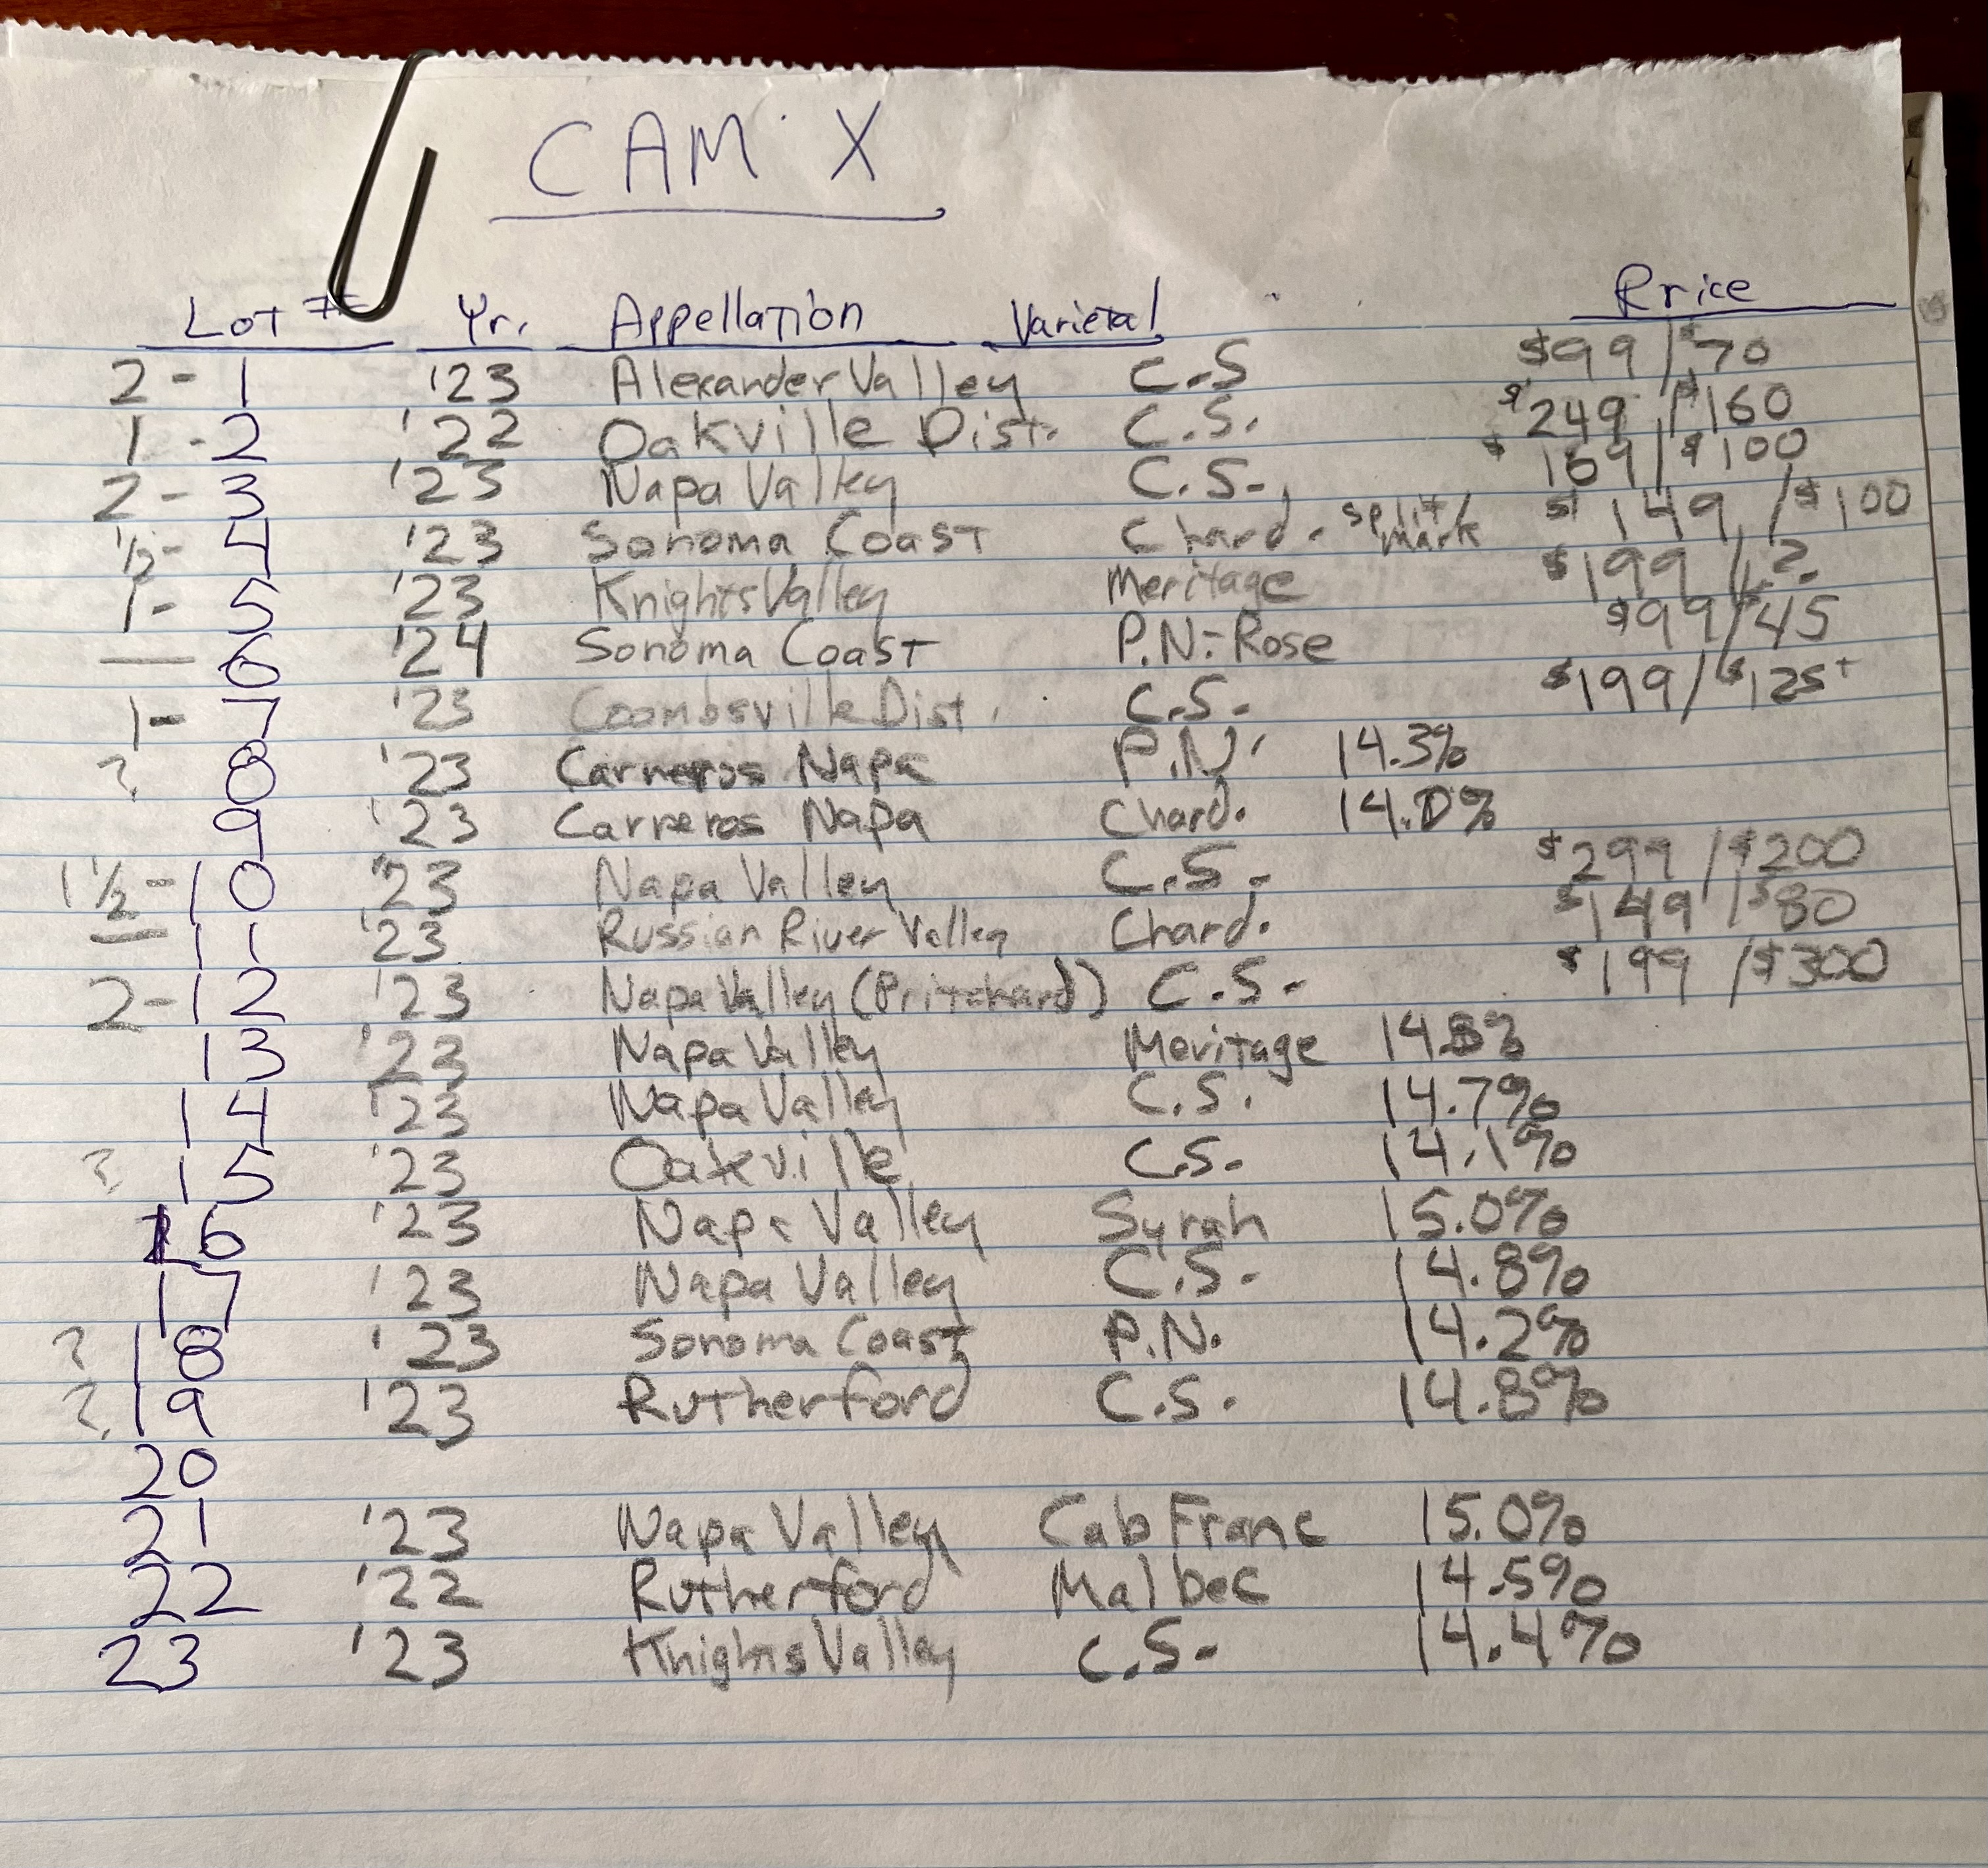 CAM X
Lot # Yr. Appellation Varietal Price
2 - 1 '23 Alexander Valley C.S $99 / $70
1 - 2 '22 Oakville Dist. C.S. $249 / $160
2 - 3 '23 Napa Valley C.S. $169 / $100
1/2 - 4 '23 Sonoma Coast Chard. - split/mark $149 / $100
1 - 5 '23 Knights Valley Meritage $199 / ?
— 6 '24 Sonoma Coast P.N. - Rose $99 / $45
1 - 7 '23 Coombsville Dist. C.S. $199 / $125+
? 8 '23 Carneros Napa P.N. 14.3%
9 '23 Carneros Napa Chard. 14.0%
1 1/2 - 10 '23 Napa Valley C.S. $299 / $200
— 11 '23 Russian River Valley Chard. $149 / $80
2 - 12 '23 Napa Valley (Pritchard) C.S. $199 / $300
13 '23 Napa Valley Meritage
14 '23 Napa Valley C.S. 14.7%
? 15 '23 Oakville C.S. 14.1%
16 '23 Napa Valley Syrah 15.0%
17 '23 Napa Valley C.S. 14.8%
? 18 '23 Sonoma Coast P.N. 14.2%
? 19 '23 Rutherford C.S. 14.8%
20
21 '23 Napa Valley Cab Franc 15.0%
22 '22 Rutherford Malbec 14.5%
23 '23 Knighs Valley C.S. 14.4%